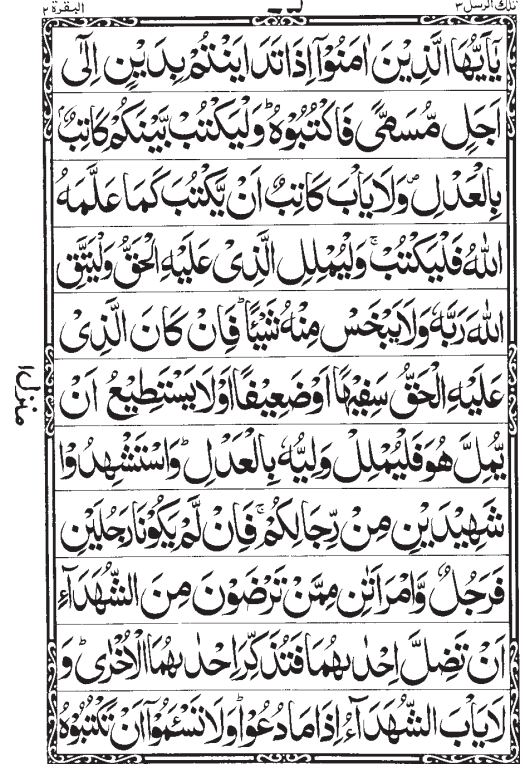 تلك الرسل ٣ البقرة ٢
يٰۤاَيُّهَا الَّذِيْنَ اٰمَنُوْۤا اِذَا تَدَايَنْتُمْ بِدَيْنٍ اِلٰۤى
اَجَلٍ مُّسَمًّى فَاكْتُبُوْهُ ؕ وَلْيَكْتُبْ بَّيْنَكُمْ كَاتِبٌۢ
بِالْعَدْلِ ۪ وَلَا يَاْبَ كَاتِبٌ اَنْ يَّكْتُبَ كَمَا عَلَّمَهُ
اللّٰهُ فَلْيَكْتُبْ ۚ وَلْيُمْلِلِ الَّذِيْ عَلَيْهِ الْحَقُّ وَلْيَتَّقِ
اللّٰهَ رَبَّهٗ وَلَا يَبْخَسْ مِنْهُ شَيْـًٔا ؕ فَاِنْ كَانَ الَّذِيْ
عَلَيْهِ الْحَقُّ سَفِيْهًا اَوْ ضَعِيْفًا اَوْ لَا يَسْتَطِيْعُ اَنْ
يُّمِلَّ هُوَ فَلْيُمْلِلْ وَلِيُّهٗ بِالْعَدْلِ ؕ وَاسْتَشْهِدُوْا
شَهِيْدَيْنِ مِنْ رِّجَالِكُمْ ۚ فَاِنْ لَّمْ يَكُوْنَا رَجُلَيْنِ
فَرَجُلٌ وَّامْرَاَتٰنِ مِمَّنْ تَرْضَوْنَ مِنَ الشُّهَدَآءِ
اَنْ تَضِلَّ اِحْدٰىهُمَا فَتُذَكِّرَ اِحْدٰىهُمَا الْاُخْرٰى ؕ وَ
لَا يَاْبَ الشُّهَدَآءُ اِذَا مَا دُعُوْا ؕ وَلَا تَسْـَٔمُوْۤا اَنْ تَكْتُبُوْهُ
منزل ١